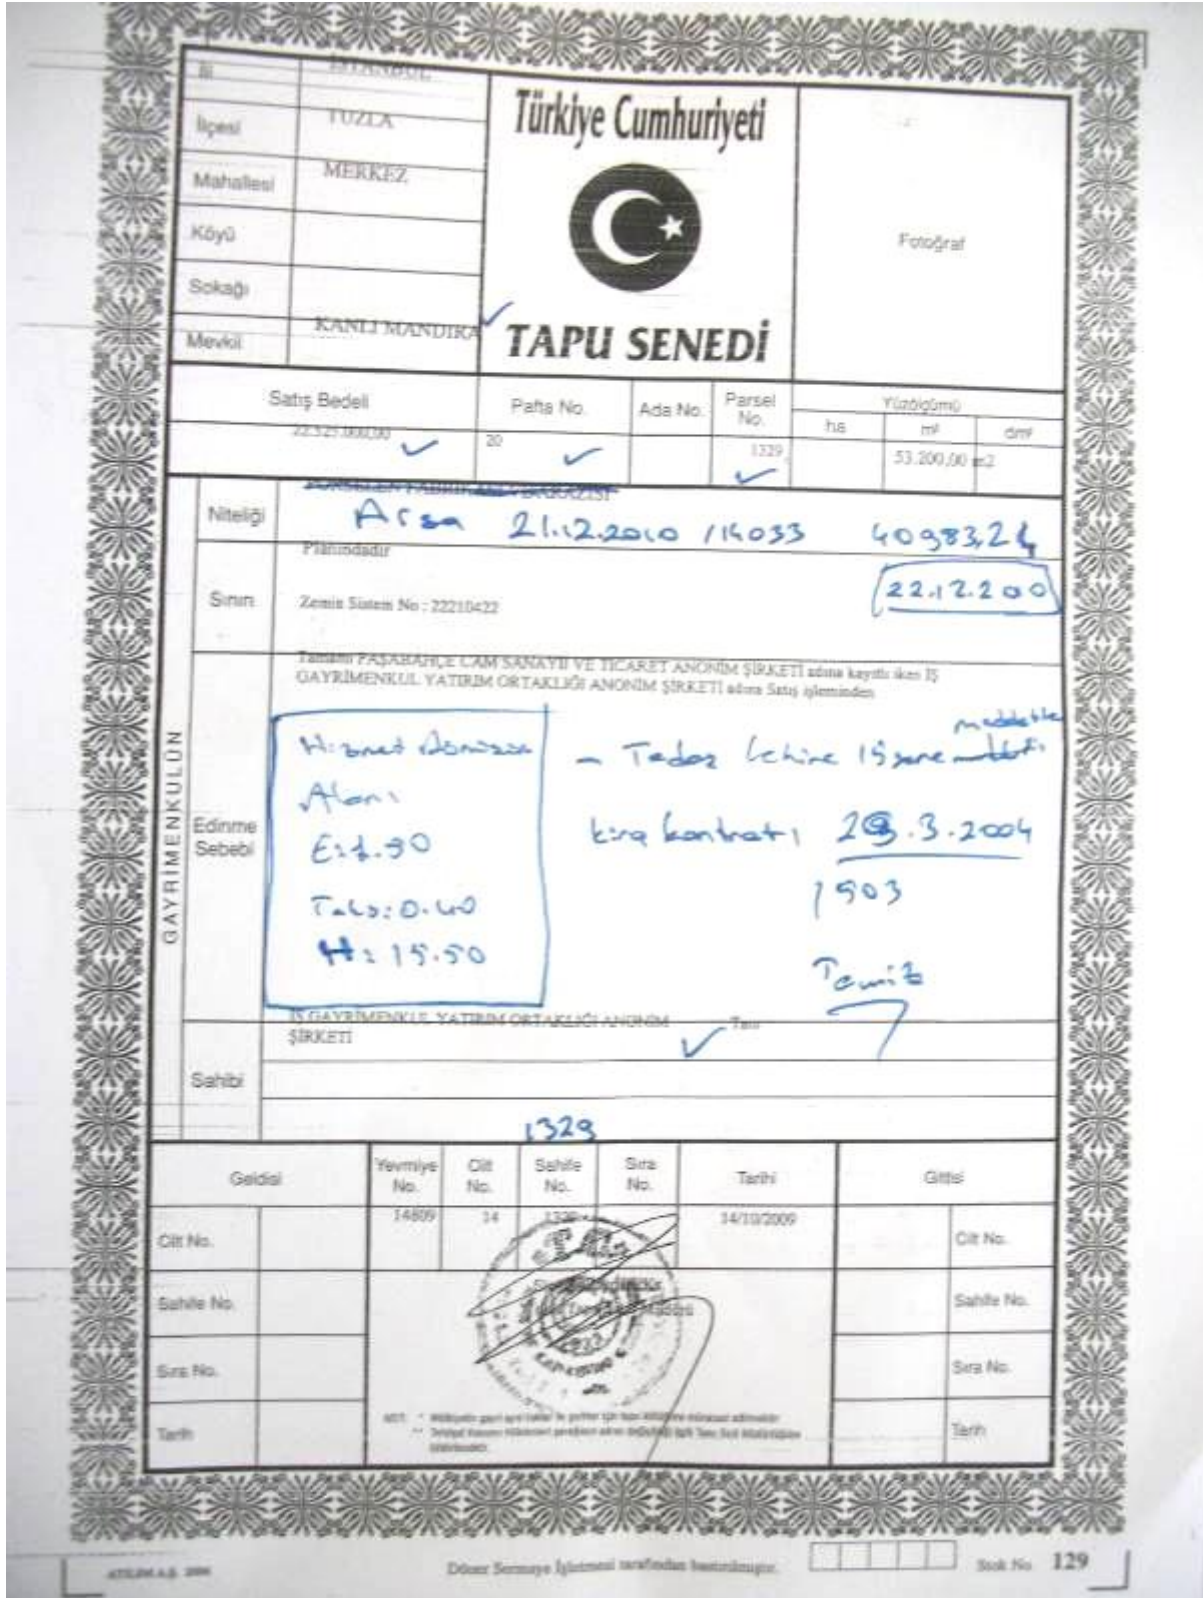 İli İSTANBUL
İlçesi TUZLA
Mahallesi MERKEZ
Köyü
Sokağı
Mevkii KANLI MANDIRA
Türkiye Cumhuriyeti
TAPU SENEDİ
Fotoğraf
Satış Bedeli Pafta No. Ada No. Parsel No. Yüzölçümü
ha m² dm²
22.525.000,00 20 1329 53.200,00 m2
GAYRİMENKULÜN
Niteliği PORSELEN FABRİKASI ARAZİSİ
Arsa 21.12.2010 / 14033 40983,24
Planındadır
22.12.200
Sınırı Zemin Sistem No : 22210422
Edinme Sebebi
Tamamı PAŞABAHÇE CAM SANAYİİ VE TİCARET ANONİM ŞİRKETİ adına kayıtlı iken İŞ
GAYRİMENKUL YATIRIM ORTAKLIĞI ANONİM ŞİRKETİ adına Satış işleminden
Hizmet
Alanı
E:1.90
Taks:0.40
H: 15.50
- Tedaş lehine
kira kontratı .3.2004
1903
Temiz
Sahibi
İŞ GAYRİMENKUL YATIRIM ORTAKLIĞI ANONİM Tam
ŞİRKETİ
1329
Geldisi Yevmiye No. Cilt No. Sahife No. Sıra No. Tarihi Gittisi
14809 14 1329 14/10/2009
Cilt No. Cilt No.
Sahife No. Sahife No.
Sıra No. Sıra No.
Tarih Tarih
NOT: * Mülkiyetin gayri ayni haklar ile
ATILIM A.Ş. 2006 Döner Sermaye İşletmesi tarafından bastırılmıştır. Stok No 129